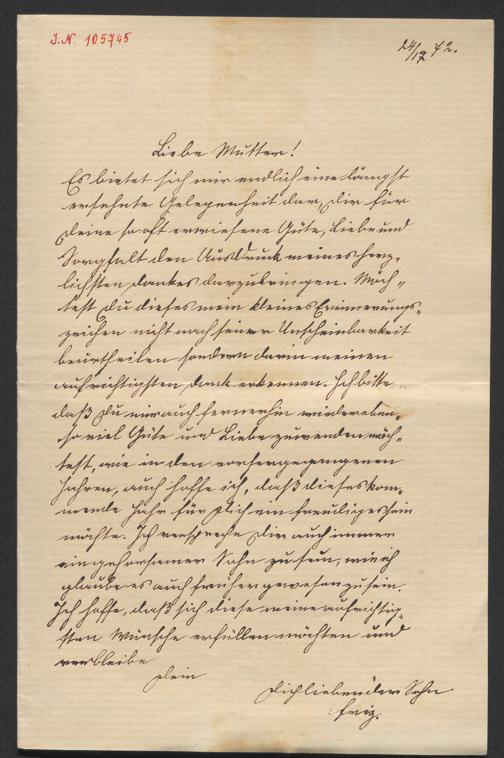 J.N. 105745
24/12 72.
Liebe Mutter!
Es bietet sich mir endlich eine längst
ersehnte Gelegenheit dar, Dir für
Deine so oft erwiesene Güte, Liebe und
Sorgfalt den Ausdruck meines herz-
lichsten Dankes darzubringen. Möch-
test Du dieses mein kleines Erinnerungs-
zeichen nicht nach seiner Unscheinbarkeit
beurtheilen sondern darin meinen
aufrichtigsten Dank erkennen. Ich bitte
daß Du mir auch fernerhin wieder eben-
so viel Güte und Liebe zuwenden möch-
test, wie in den vorhergegangenen
Jahren, auch hoffe ich, daß dieses kom-
mende Jahr für Dich ein freudiges sein
möchte. Ich verspreche Dir auch immer
ein gehorsamer Sohn zu sein, wie ich
glaube es auch früher gewesen zu sein.
Ich hoffe, daß sich diese meine aufrichtig-
sten Wünsche erfüllen möchten und
verbleibe
Dein
Dich liebender Sohn
Friz.